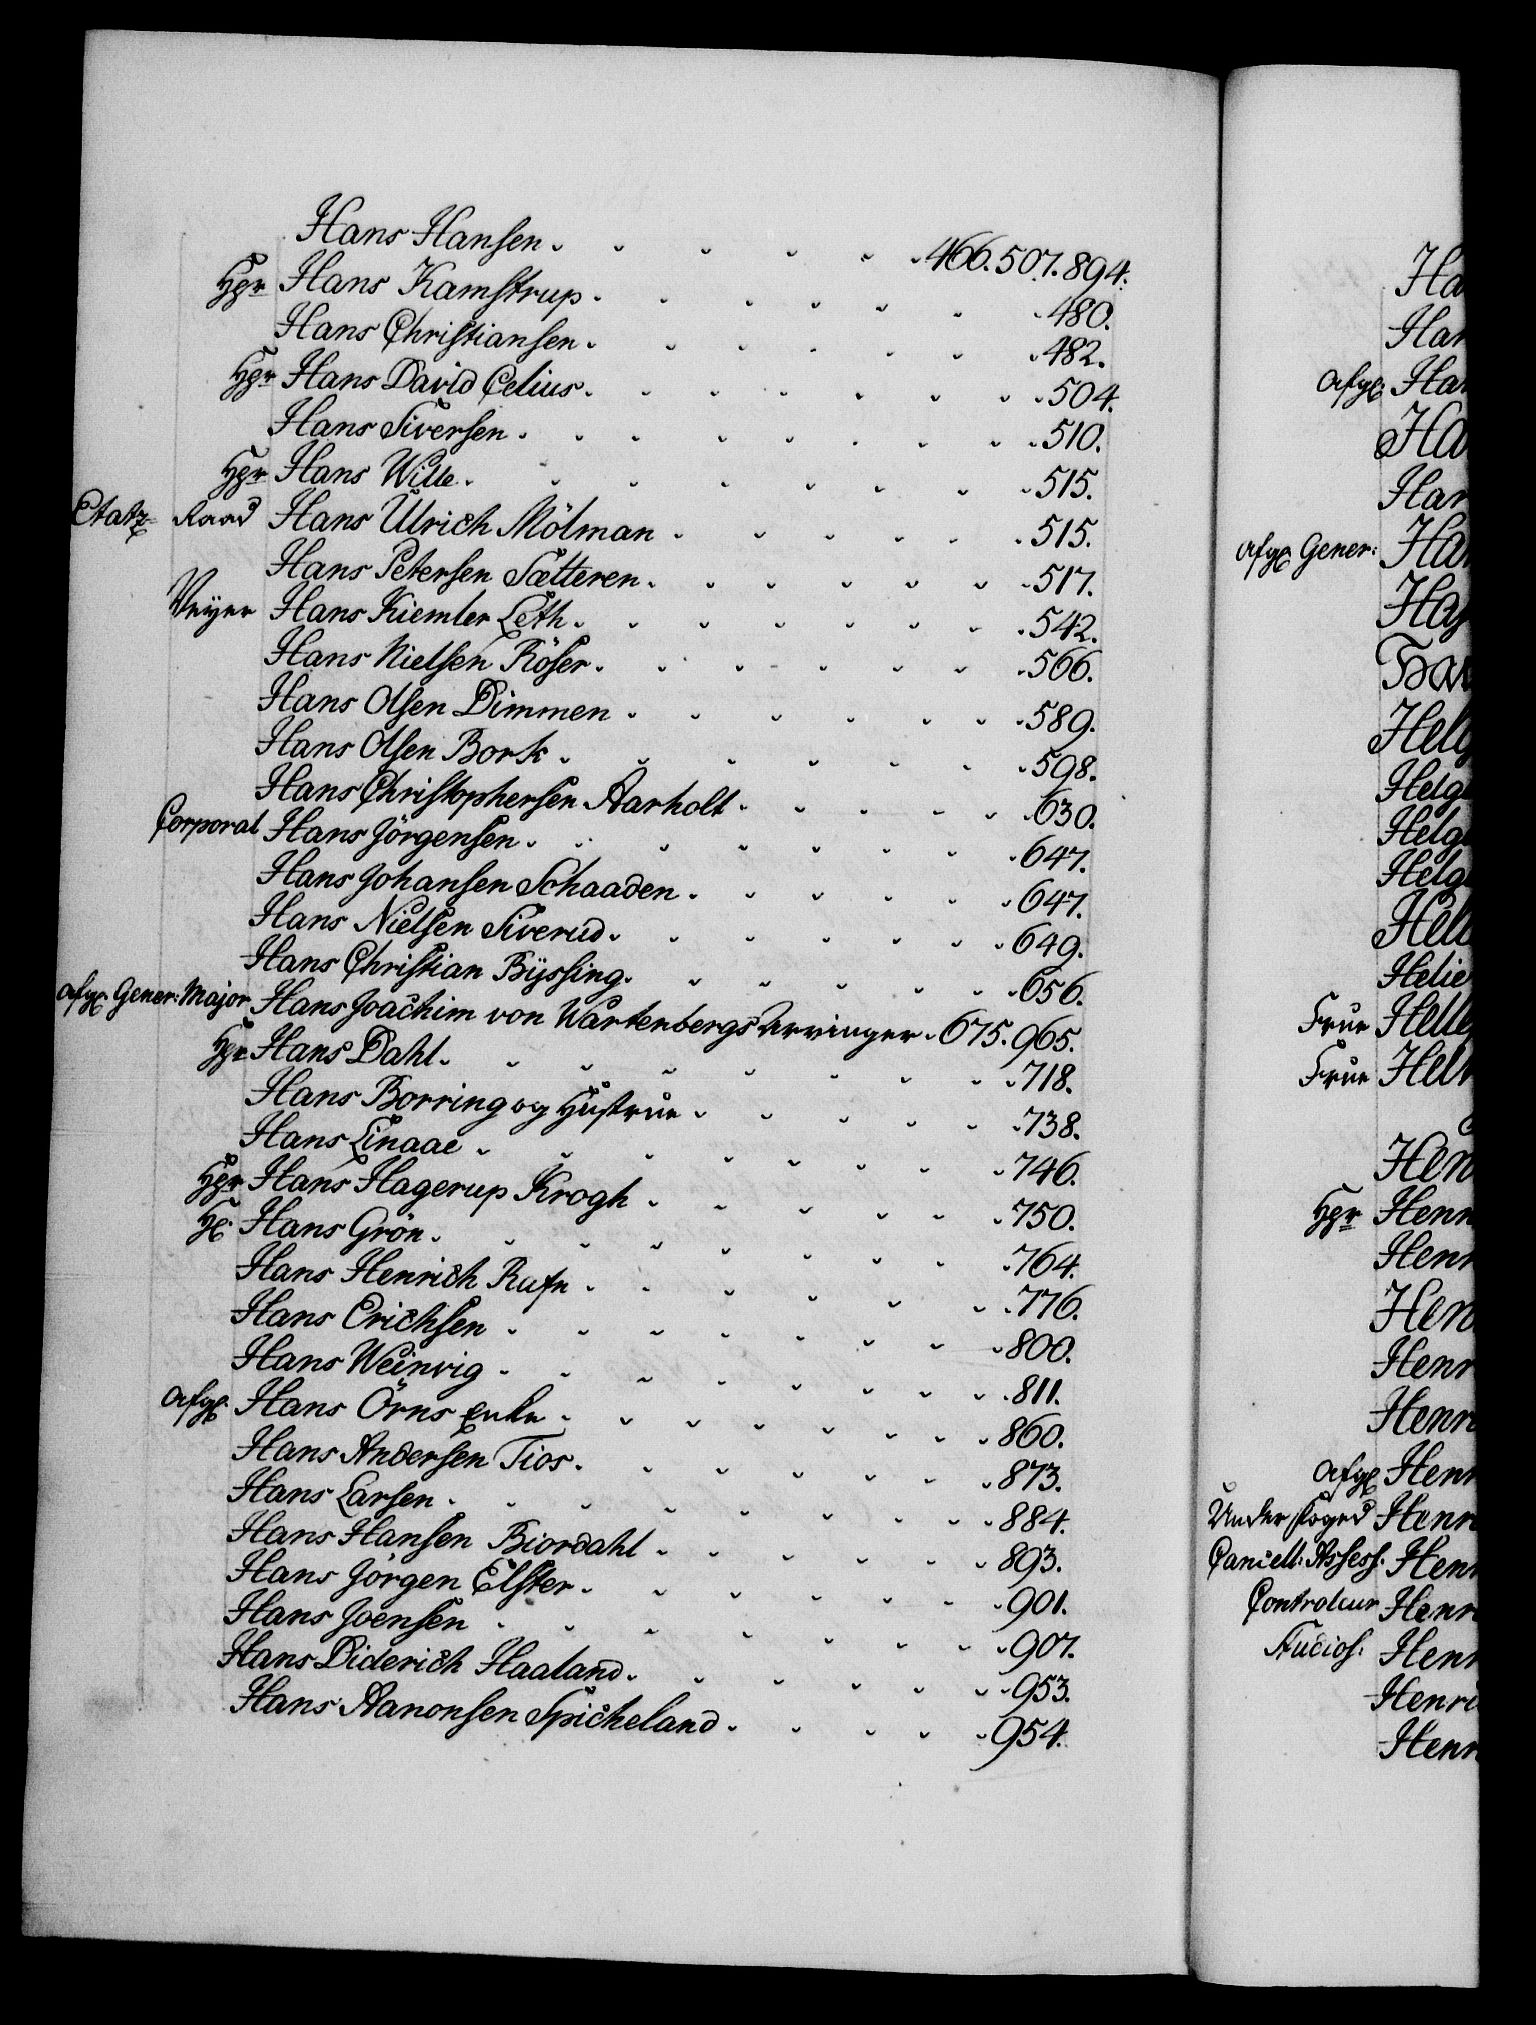 Hans Hansen. 466. 507. 894.
Hgr Hans Kamstrup. 480.
Hans Christiansen. 482.
Hgr Hans David Celius. 504.
Hans Siversen. 510.
Hgr Hans Wille. 515.
Etatz Raad Hans Ulrich Mölman 515.
Hans Petersen Sætteren. 517.
Veyer Hans Kiemler Leth. 542.
Hans Nielsen Röser. 566.
Hans Olsen Dimmen 589.
Hans Olsen Bork. 598.
Hans Christophersen Aarholt 630.
Corporal Hans Jörgensen. 647.
Hans Johansen Schaaden. 647.
Hans Nielsen Siverud. 649.
Hans Christian Byssing. 656.
afg. Gener: Major Hans Joachim von Wartenbergs Arvinger. 675. 965.
Hgr Hans Dahl. 718.
Hans Borring og Hustrue 738.
Hans Linaae 746.
Hgr Hans Hagerup Krogh 750.
Hr. Hans Grön. 764.
Hans Henrich Rafn 776.
Hans Erichsen 800.
Hans Weinvig 811.
afg. Hans Örns Enke 860.
Hans Andersen Tios. 873.
Hans Larsen 884.
Hans Hansen Biordahl 893.
Hans Jörgen Elster. 901.
Hans Joensen 907.
Hans Diderich Haaland. 953.
Hans Aanonsen Spicheland 954.
Ha
Han
afg. Han
Ha
Han
afg. Gener: Han
Ha
Hel
Helg
Helg
Helg
Hel
Helie
Frue Helle
Frue Hel
Hen
Hgr Henr
Henr
Hen
Henr
Henr
afg. Henr
Under foged Henr
Cancell: Assess. Henr
Controleur Henr
Studios: Henr
Henri
Henr